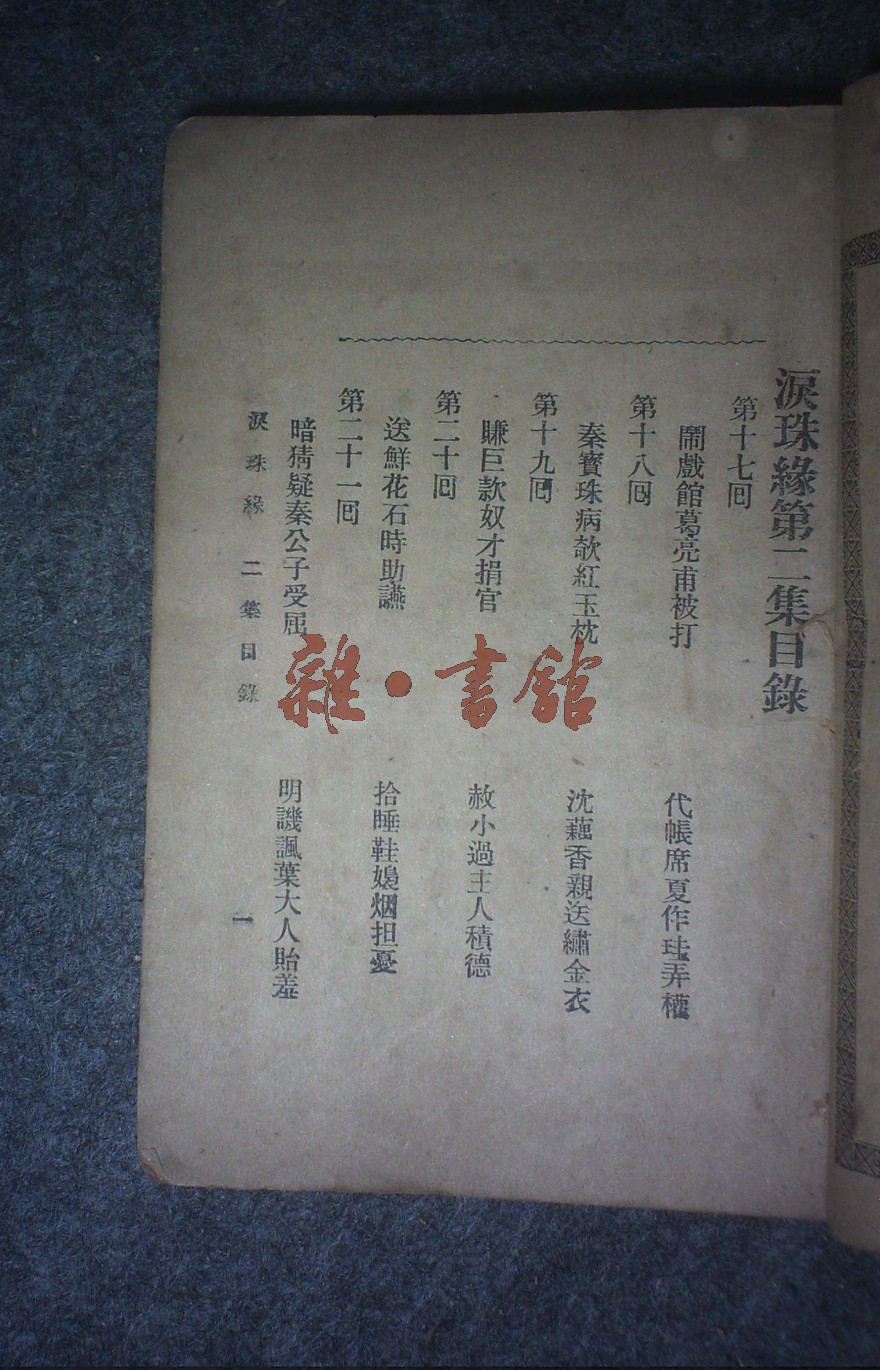 淚珠緣第二集目錄
第十七回
鬧戲館葛亮甫被打 代帳席夏作珪弄權
第十八回
秦寶珠病欹紅玉枕 沈藕香親送繡金衣
第十九回
賺巨款奴才捐官 赦小過主人積德
第二十回
送鮮花石時助讌 拾睡鞋嬝烟担憂
第二十一回
暗猜疑秦公子受屈 明譏諷葉大人貽羞
淚珠緣 二集目錄 一
雜·書館